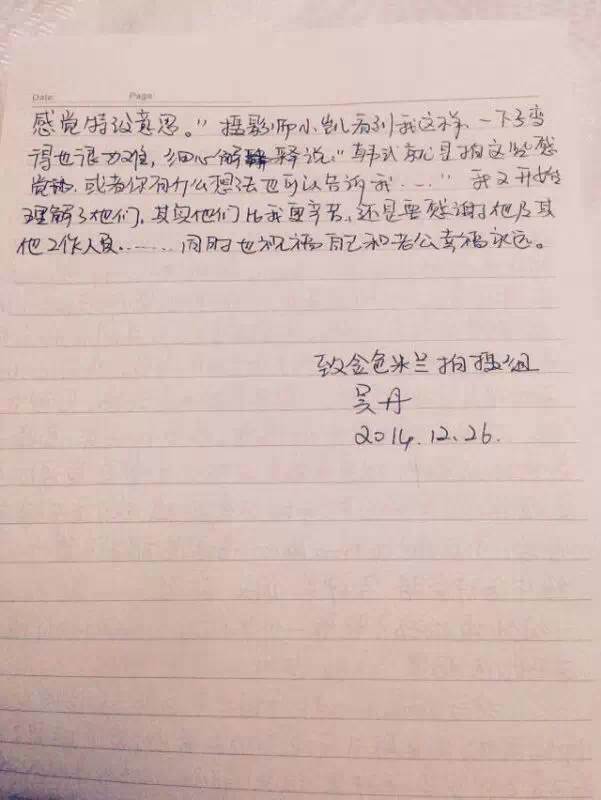 Date Page
感觉特没意思。"摄影师小凯看到我这样,一下子变
得也很为难,细心解释说:"韩式就是拍这些感
觉,或者你有什么想法也可以告诉我……"我又开始
理解了他们,其实他们比我更辛苦,还是要感谢他及其
他工作人员………同时也祝福自己和老公幸福永远。
致金色米兰拍摄组
吴丹
2014.12.26.